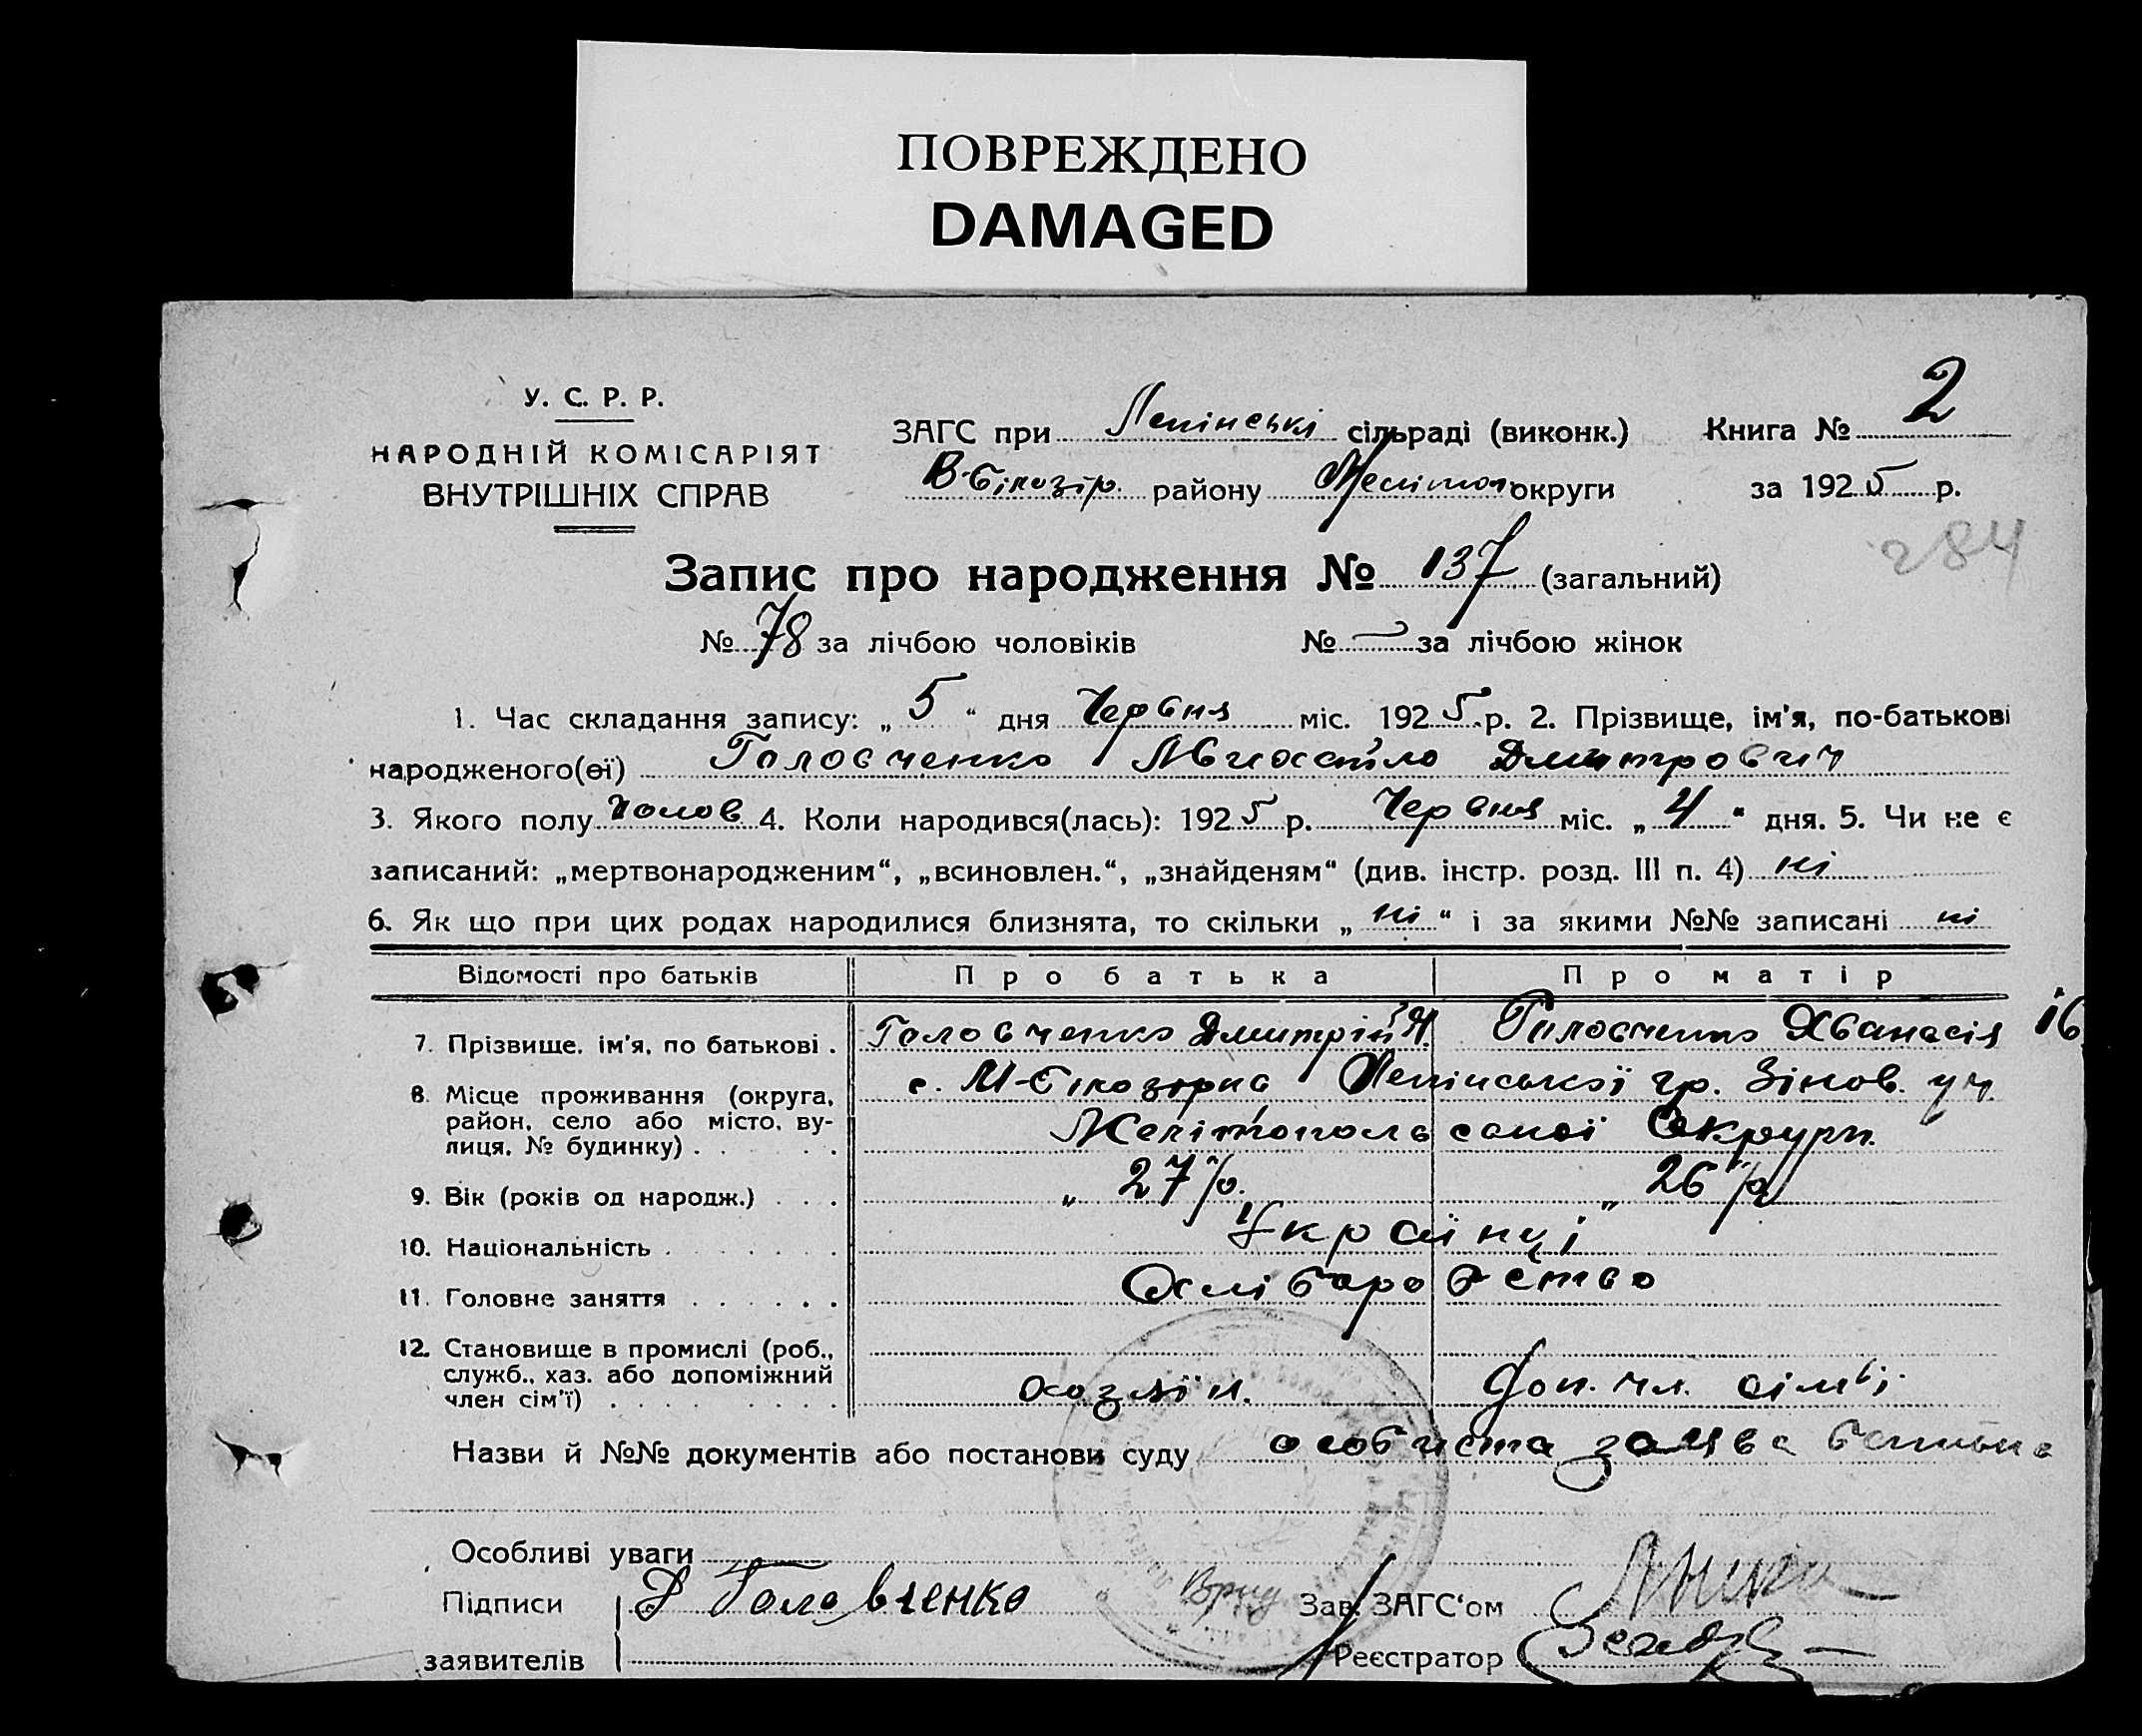 ПОВРЕЖДЕНО
DAMAGED
У. С. Р. Р.
НАРОДНІЙ КОМІСАРІЯТ
ВНУТРІШНІХ СПРАВ
ЗАГС при Ленінські сільраді (виконк.) Книга № 2
В-Білозір. району Мелітоп округи за 1925 р.
284
Запис про народження № 137 (загальний)
№ 78 за лічбою чоловіків № — за лічбою жінок
1. Час складання запису: „ 5 “ дня Червня міс. 1925 р. 2. Прізвище, ім'я, по-батькові
народженого(ої) Головченко Дмитрович
3. Якого полу Чолов 4. Коли народився(лась): 1925 р. Червня міс. „ 4 “ дня. 5. Чи не є
записаний: „мертвонародженим“, „всиновлен.“, „знайденям“ (див. інстр. розд. III п. 4) ні
6. Як що при цих родах народилися близнята, то скільки „ ні “ і за якими №№ записані ні
Відомості про батьків Про батька Про матір
7. Прізвище. ім'я, по батькові . Головченко Дмитрій Я. Головченко Хванасія
8. Місце проживання (округа, с. М-Білозірка Ленінської гр. Зінов. уч.
район, село або місто, ву-
лиця, № будинку) . . . . Мелітопольської Округи.
9. Вік (років од народж.) . . . „ 27 р. „ 26 р.
10. Національність . . . . . . Українці
11. Головне заняття . . . . . . Хліборобство
12. Становище в промислі (роб.,
служб., хаз. або допоміжний
член сім'ї) . . . . . . . . . хозяїн. доп. чл. сім'ї
Назви й №№ документів або постанови суду особиста заява батька
Особливі уваги
Підписи Д Головченко Врид Зав. ЗАГС'ом
заявителів Реєстратор